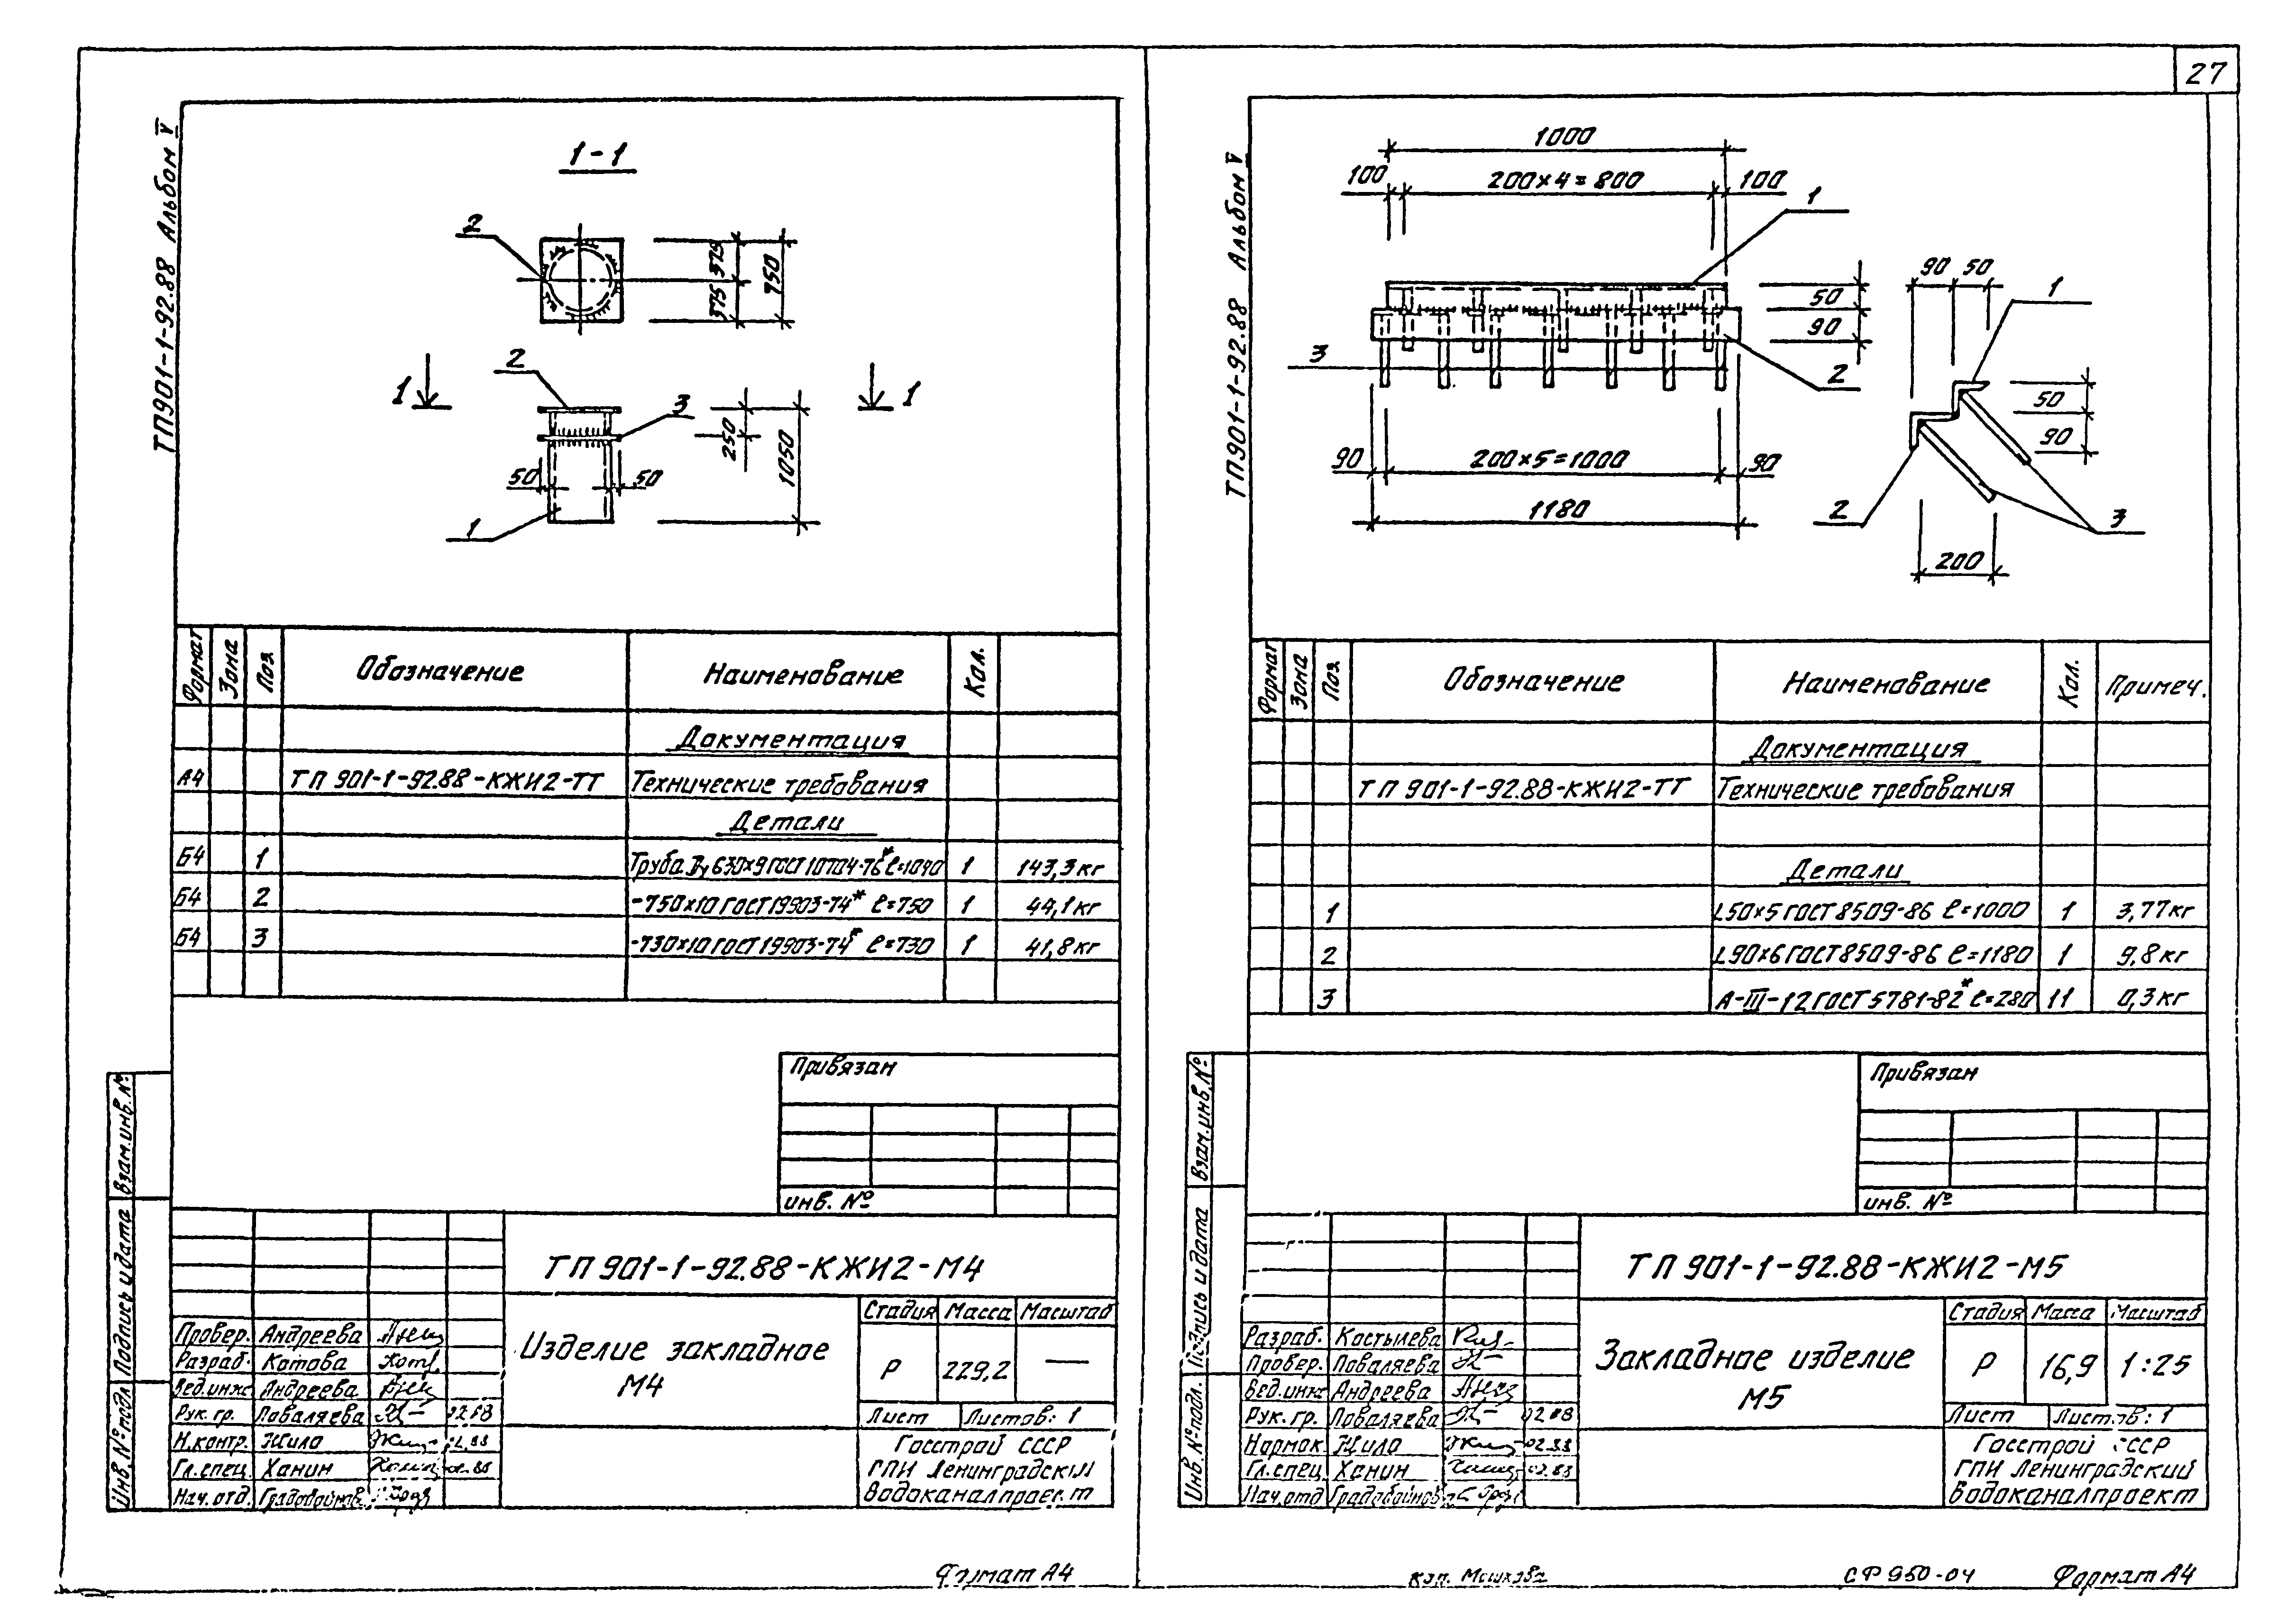 27
ТП901-1-92.88 Альбом V
1-1
2
375
375
750
1
1
2
3
250
1050
50
50
1
Формат Зона Поз Обозначение Наименование Кол.
Документация
А4 ТП 901-1-92.88-КЖИ2-ТТ Технические требования
Детали
Б4 1 Труба Ду 630×9 ГОСТ 10704-76* ℓ=1040 1 143,3кг
Б4 2 -750×10 ГОСТ 19903-74* ℓ=750 1 44,1кг
Б4 3 -730×10 ГОСТ 19903-74* ℓ=730 1 41,8кг
Привязан
инв. №
Взам.инв.№
Подпись и дата
Инв.№подл
ТП 901-1-92.88-КЖИ2-М4
Изделие закладное
М4
Стадия Масса Масштаб
Р 229,2 —
Лист Листов: 1
Госстрой СССР
ГПИ Ленинградский
Водоканалпроект
Провер. Андреева
Разраб. Котова
Вед.инж Андреева
Рук.гр. Поваляева 02.88
Н.контр. Жила 02.88
Гл.спец. Ханин 02.88
Нач.отд. Градобойнов
Формат А4
ТП901-1-92.88 Альбом V
1000
100 200×4=800 100
1
50
90
3
2
90 200×5=1000 90
1180
90 50
1
50
90
2
3
200
Формат Зона Поз Обозначение Наименование Кол. Примеч.
Документация
ТП 901-1-92.88-КЖИ2-ТТ Технические требования
Детали
1 L50×5 ГОСТ 8509-86 ℓ=1000 1 3,77кг
2 L90×6 ГОСТ 8509-86 ℓ=1180 1 9,8кг
3 А-III-12 ГОСТ 5781-82* ℓ=280 11 0,3кг
Привязан
инв. №
Взам.инв.№
Подпись и дата
Инв.№подл.
ТП 901-1-92.88-КЖИ2-М5
Закладное изделие
М5
Стадия Масса Масштаб
Р 16,9 1:25
Лист Листов: 1
Госстрой СССР
ГПИ Ленинградский
Водоканалпроект
Разраб. Костылева
Провер. Поваляева
Вед.инж Андреева
Рук.гр. Поваляева 02.88
Нормок. Жила 02.88
Гл.спец Ханин 02.88
Нач.отд Градобойнов
Коп. Мошкова
СФ 950-04
Формат А4